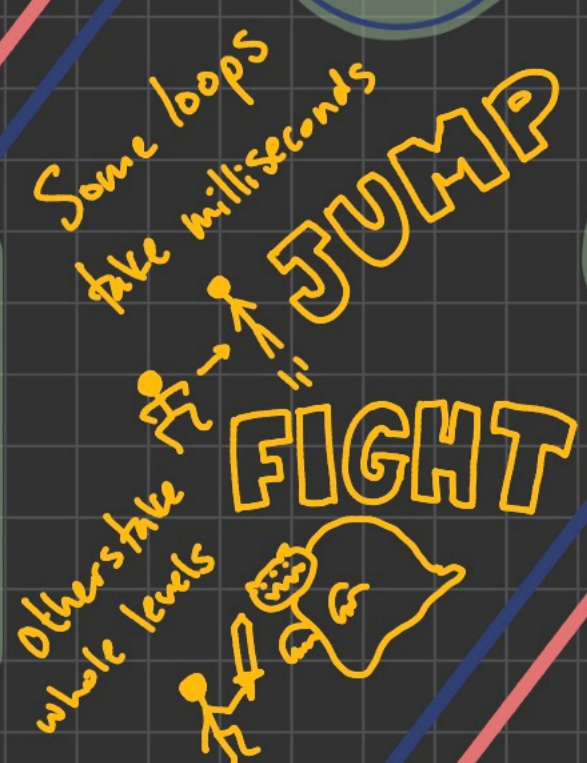 Some loops
take milliseconds
JUMP
FIGHT
Others take
whole levels